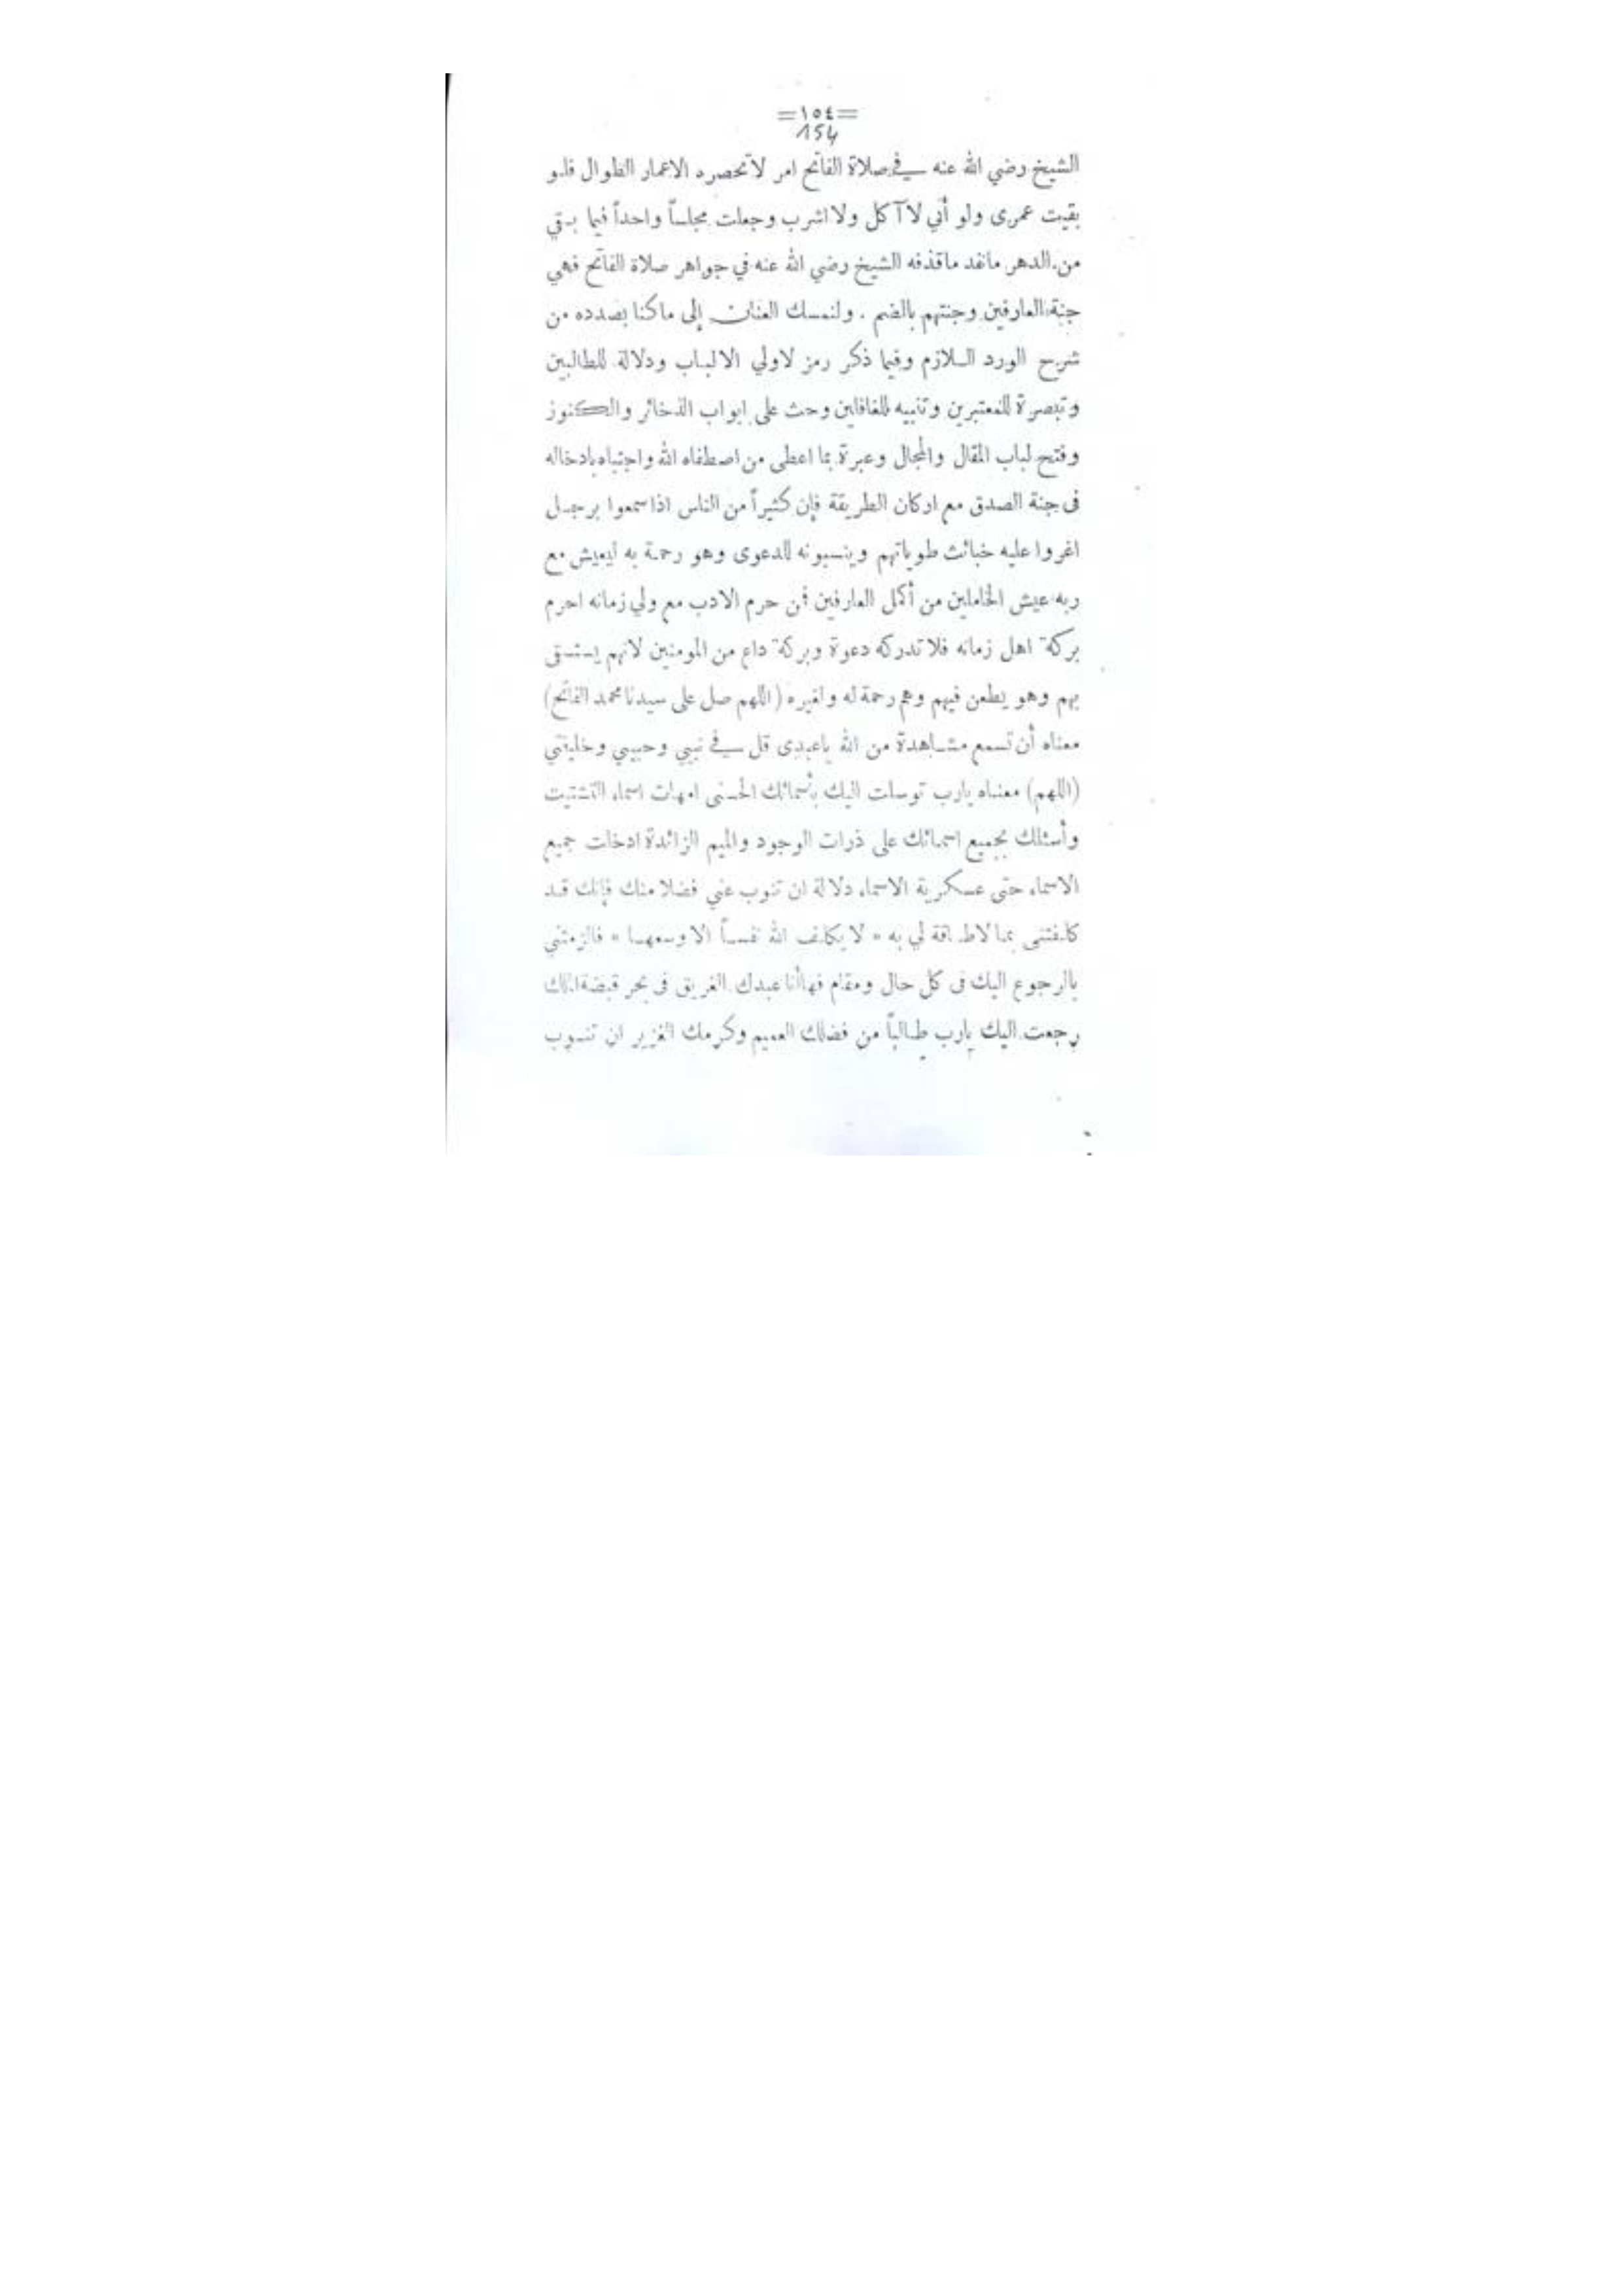 =١٥٤=
154
الشيخ رضي الله عنه في صلاة الفاتح امر لا تحصره الاعمار الطوال فلو
بقيت عمرى ولو أني لا آكل ولا اشرب وجعلت مجلساً واحداً فيما بقي
من الدهر مانفد ماقذفه الشيخ رضي الله عنه في جواهر صلاة الفاتح فهي
جنة العارفين وجنتهم بالضم . ولنمسك العنان إلى ماكنا بصدده من
شرح الورد اللازم وفيما ذكر رمز لاولي الالباب ودلالة للطالبين
وتبصرة للمعتبرين وتنبيه للغافلين وحث على ابواب الذخائر والكنوز
وفتح لباب المقال والمجال وعبرة بما اعطى من اصطفاه الله واجتباه بادخاله
فى جنة الصدق مع اركان الطريقة فإن كثيراً من الناس اذا سمعوا برجل
اغروا عليه خبائث طوياتهم وينسبونه للدعوى وهو رحمة به ليعيش مع
ربه عيش الخاملين من أكمل العارفين فمن حرم الادب مع ولي زمانه احرم
بركة اهل زمانه فلا تدركه دعوة وبركة داع من المومنين لانهم يستسقى
بهم وهو يطعن فيهم وهم رحمة له ولغيره (اللهم صل على سيدنا محمد الفاتح)
معناه أن تسمع مشاهدة من الله ياعبدى قل في نبيي وحبيبي وخليفتي
(اللهم) معناه يارب توسلت اليك بأسمائك الحسنى امهات اسماء التشتيت
وأسئلك بجميع اسمائك على ذرات الوجود والميم الزائدة ادخلت جميع
الاسماء حتى عسكرية الاسماء دلالة ان تنوب عني فضلا منك فإنك قد
كلفتنى بما لاطاقة لي به « لا يكلف الله نفساً الا وسعها » فالزمتني
بالرجوع اليك فى كل حال ومقام فهاأنا عبدك الغريق فى بحر قبضة
رجعت اليك يارب طالباً من فضلك العميم وكرمك الغزير ان تنوب